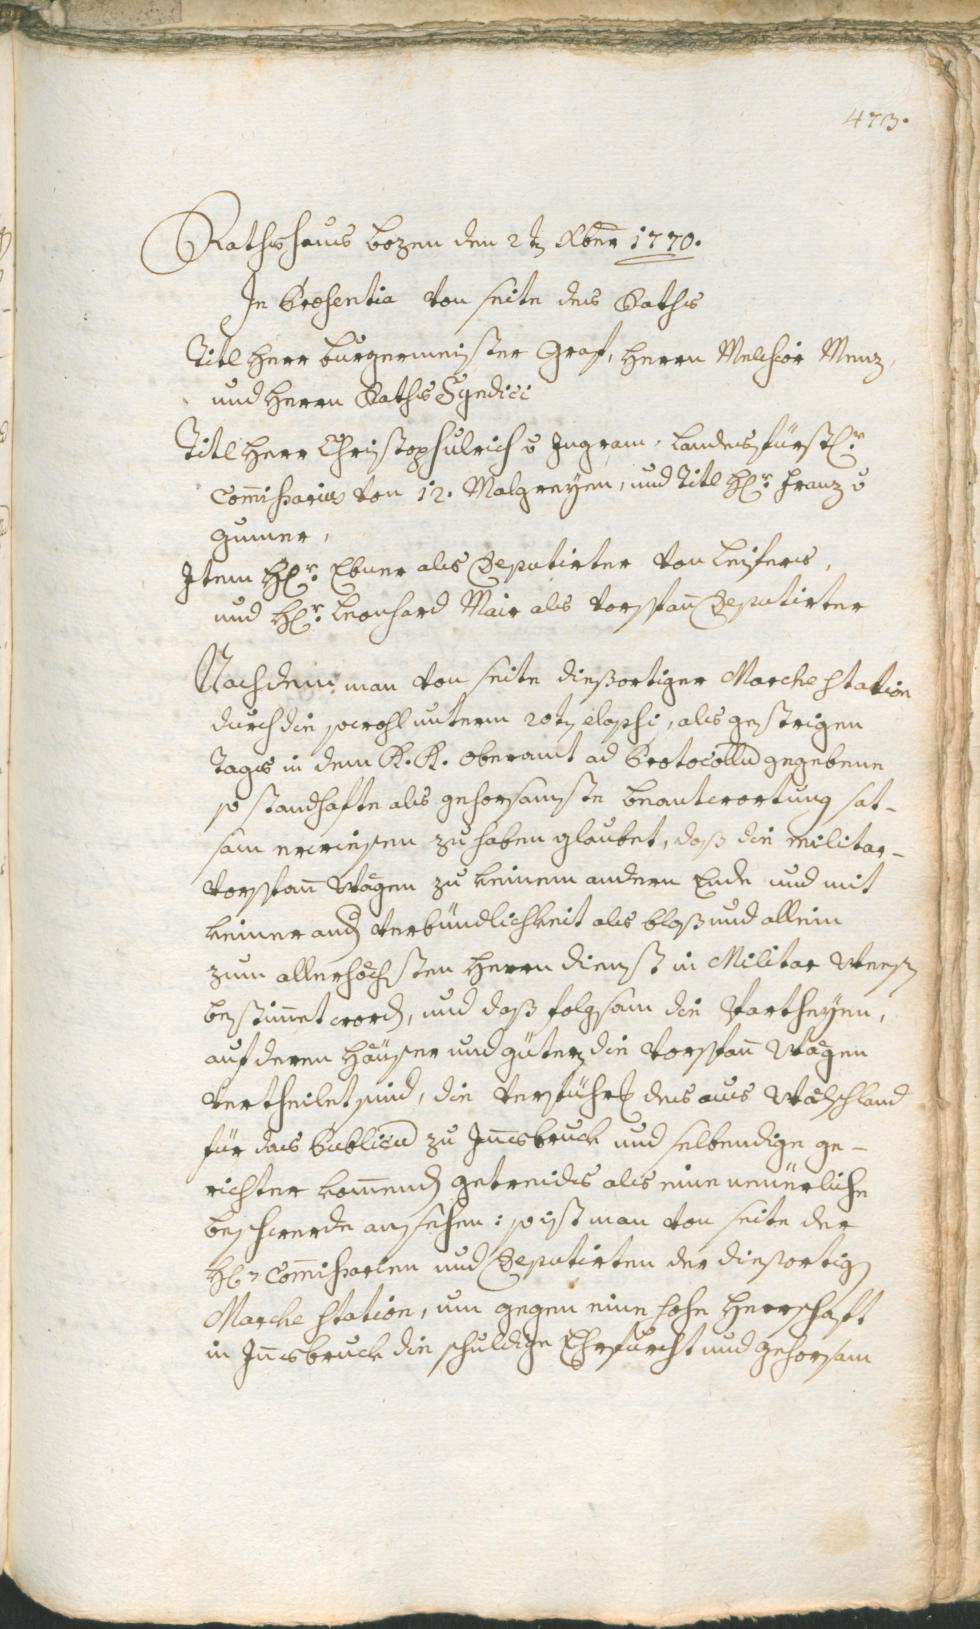 473.
Rathshaus Bozen den 2t Xber 1770.
In Præsentia von seite des Raths
Titl Herr Burgermeister Graf, Herrn Melchior Menz,
und Herrn Raths Syndici
Titl Herr Christoph Ulrich v Ingram, Landsfürstlr
Commissarius von 12. Malgreyen, und Titl Hr. Franz v
Gumer,
Item Hr. Ebner als Deputirter von Leifers,
und Hr. Leonhard Mair als Vorspañ Deputirter
Nachdeme man von seite dießortiger Marche station
durch die sowohl unterm 20t elapsi, als gestrigen
Tags in dem K. K. Oberamt ad Protocollū gegebene
so standhafte als gehorsamste Beantwortung sat-
sam erwiesen zu haben glaubet, daß die militar-
Vorspañ Wägen zu keinem andern Ende und mit
keiner and Verbündlichkeit als bloß und allein
zum allerhöchsten Herrn dienst in Militar Weesen
bestimet word, und daß folgsam die Partheyen,
auf deren Häuser und güter die Vorspañ Wägen
vertheilet sind, die Verführ des aus Wälschland
für das Publicū zu Iñsbruck und selbendige ge-
richter komend getreides als eine neuerliche
beschwerde ansehen: so ist man von seite der
H. Commissarien und Deputirten der dießortig
Marche station, um gegen eine hohe Herrschaft
in Iñsbruck die schuldige Ehrfurcht und gehorsam